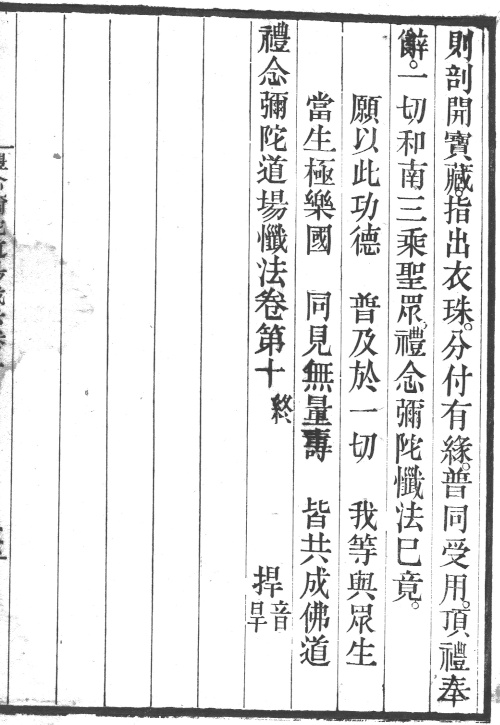 則剖開寶藏。指出衣珠。分付有緣。普同受用。頂禮奉
辭。一切和南三乘聖眾。禮念彌陀懺法巳竟。
願以此功德　普及於一切　我等與眾生
當生極樂國　同見無量壽　皆共成佛道
禮念彌陀道場懺法卷第十 終　捍 音旱